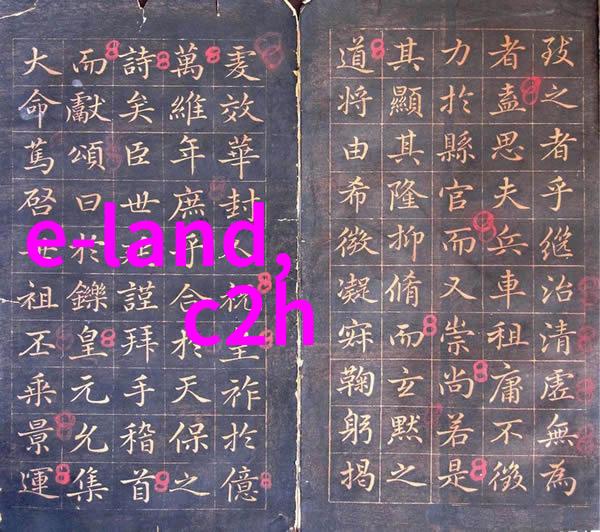 致之者乎繼治清虛無為
者盍思夫兵車租庸不徵
力於縣官而又崇尚若是
其顯其隆抑脩而玄默之
道將由希微凝寂鞠躬揭
虔效華封人祝皇祚於億
萬維年庶乎合於天保之
詩矣臣世延謹拜手稽首
而獻頌曰於鑠皇元允集
大命篤啓世祖丕乘景運
e-land,
c2h